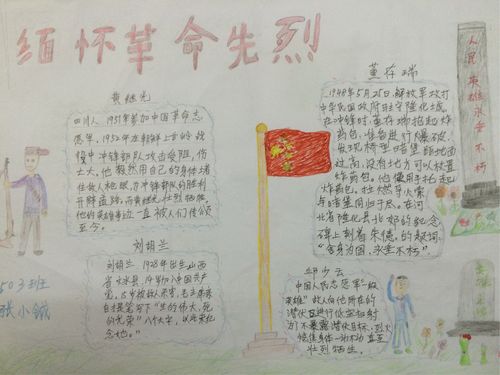 缅怀革命先烈
黄继光
四川人,1951年参加中国革命志
愿军。1952年在朝鲜上甘岭战
役中冲锋部队攻击受阻,伤
亡大,他毅然用自己的身体堵
住敌人枪眼,为冲锋部队的胜利
开辟道路,而黄继光壮烈牺牲,
他的英雄事迹一直被人们传颂
至今。
刘胡兰
刘胡兰,1928年出生山西
省文水县,14岁加入中国共产
党,15岁被敌人杀害,毛主席亲
自提笔写下“生的伟大,死
的光荣”八个大字,以此来纪
念地。”
503班
张小钺
董存瑞
1948年5月25日,解放军攻打
中华民国政府驻守隆化城,
在冲锋时,董存瑞抱起炸
药包,准备进行爆破,
发现桥型暗堡距地面
过高,没有地方可以放置
炸药包。他便用手托起
炸药包,壮燃导火索
与暗堡同归于尽。在河
北省隆化县北郊的纪念
碑上刻着朱德的题词,
“舍身为国,永垂不朽”
邱少云
中国人民志愿军“一级
英雄”敌人向他所在的
潜伏区进行低空扫射
为了不暴露潜伏目标,烈火
烧焦身体一动不动直至
壮烈牺牲。
人民英雄永垂不朽